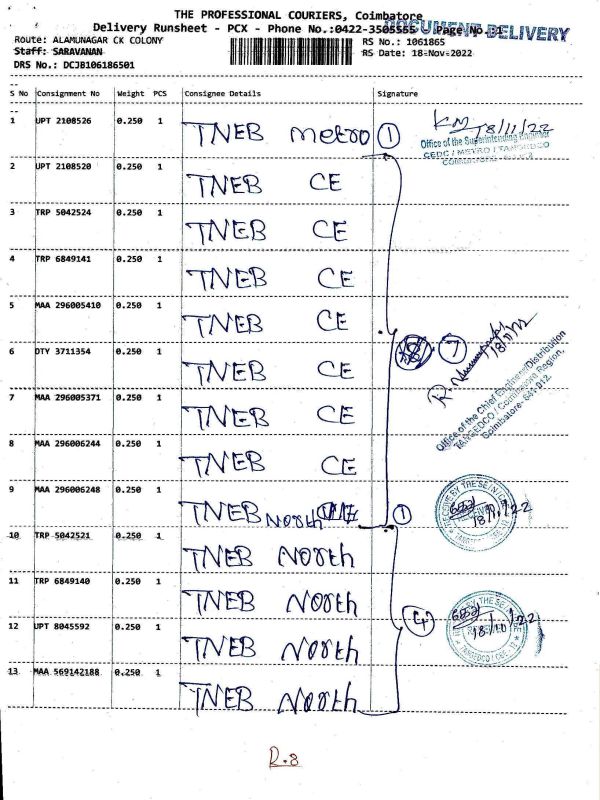 THE PROFESSIONAL COURIERS, Coimbatore
Delivery Runsheet - PCX - Phone No.:0422-3505555 Page No.:1
DOCUMENT DELIVERY
Route: ALAMUNAGAR CK COLONY
RS No.: 1061865
Staff: SARAVANAN
RS Date: 18-Nov-2022
DRS No.: DCJB106186501
S No Consignment No Weight PCS Consignee Details Signature
1 UPT 2108526 0.250 1 TNEB metro 1
KM 18/11/22
Office of the Superintending Engineer
CEDC / METRO / TANGEDCO
2 UPT 2108520 0.250 1 TNEB CE
3 TRP 5042524 0.250 1 TNEB CE
4 TRP 6849141 0.250 1 TNEB CE
5 MAA 296005410 0.250 1 TNEB CE
6 DTY 3711354 0.250 1 TNEB CE 7
18/11/22
Office of the Chief Engineer/Distribution
TANGEDCO / Coimbatore Region,
Coimbatore-641 012
7 MAA 296005371 0.250 1 TNEB CE
8 MAA 296006244 0.250 1 TNEB CE
9 MAA 296006248 0.250 1 TNEB North 1
18/11/22
10 TRP 5042521 0.250 1 TNEB North
11 TRP 6849140 0.250 1 TNEB North 4
12 UPT 8045592 0.250 1 TNEB North
13 MAA 569142188 0.250 1 TNEB North
R.8